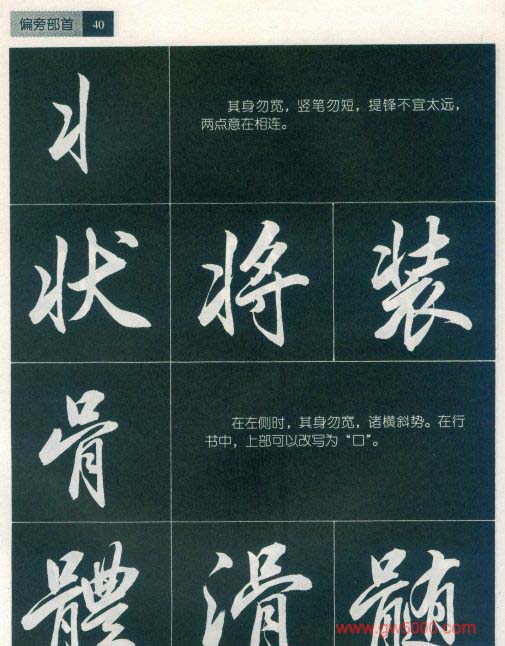 偏旁部首 40
丬
其身勿宽，竖笔勿短，提锋不宜太远，
两点意在相连。
状 将 装
骨
在左侧时，其身勿宽，诸横斜势。在行
书中，上部可以改写为“口”。
體 滑 髓
www.gw5000.com